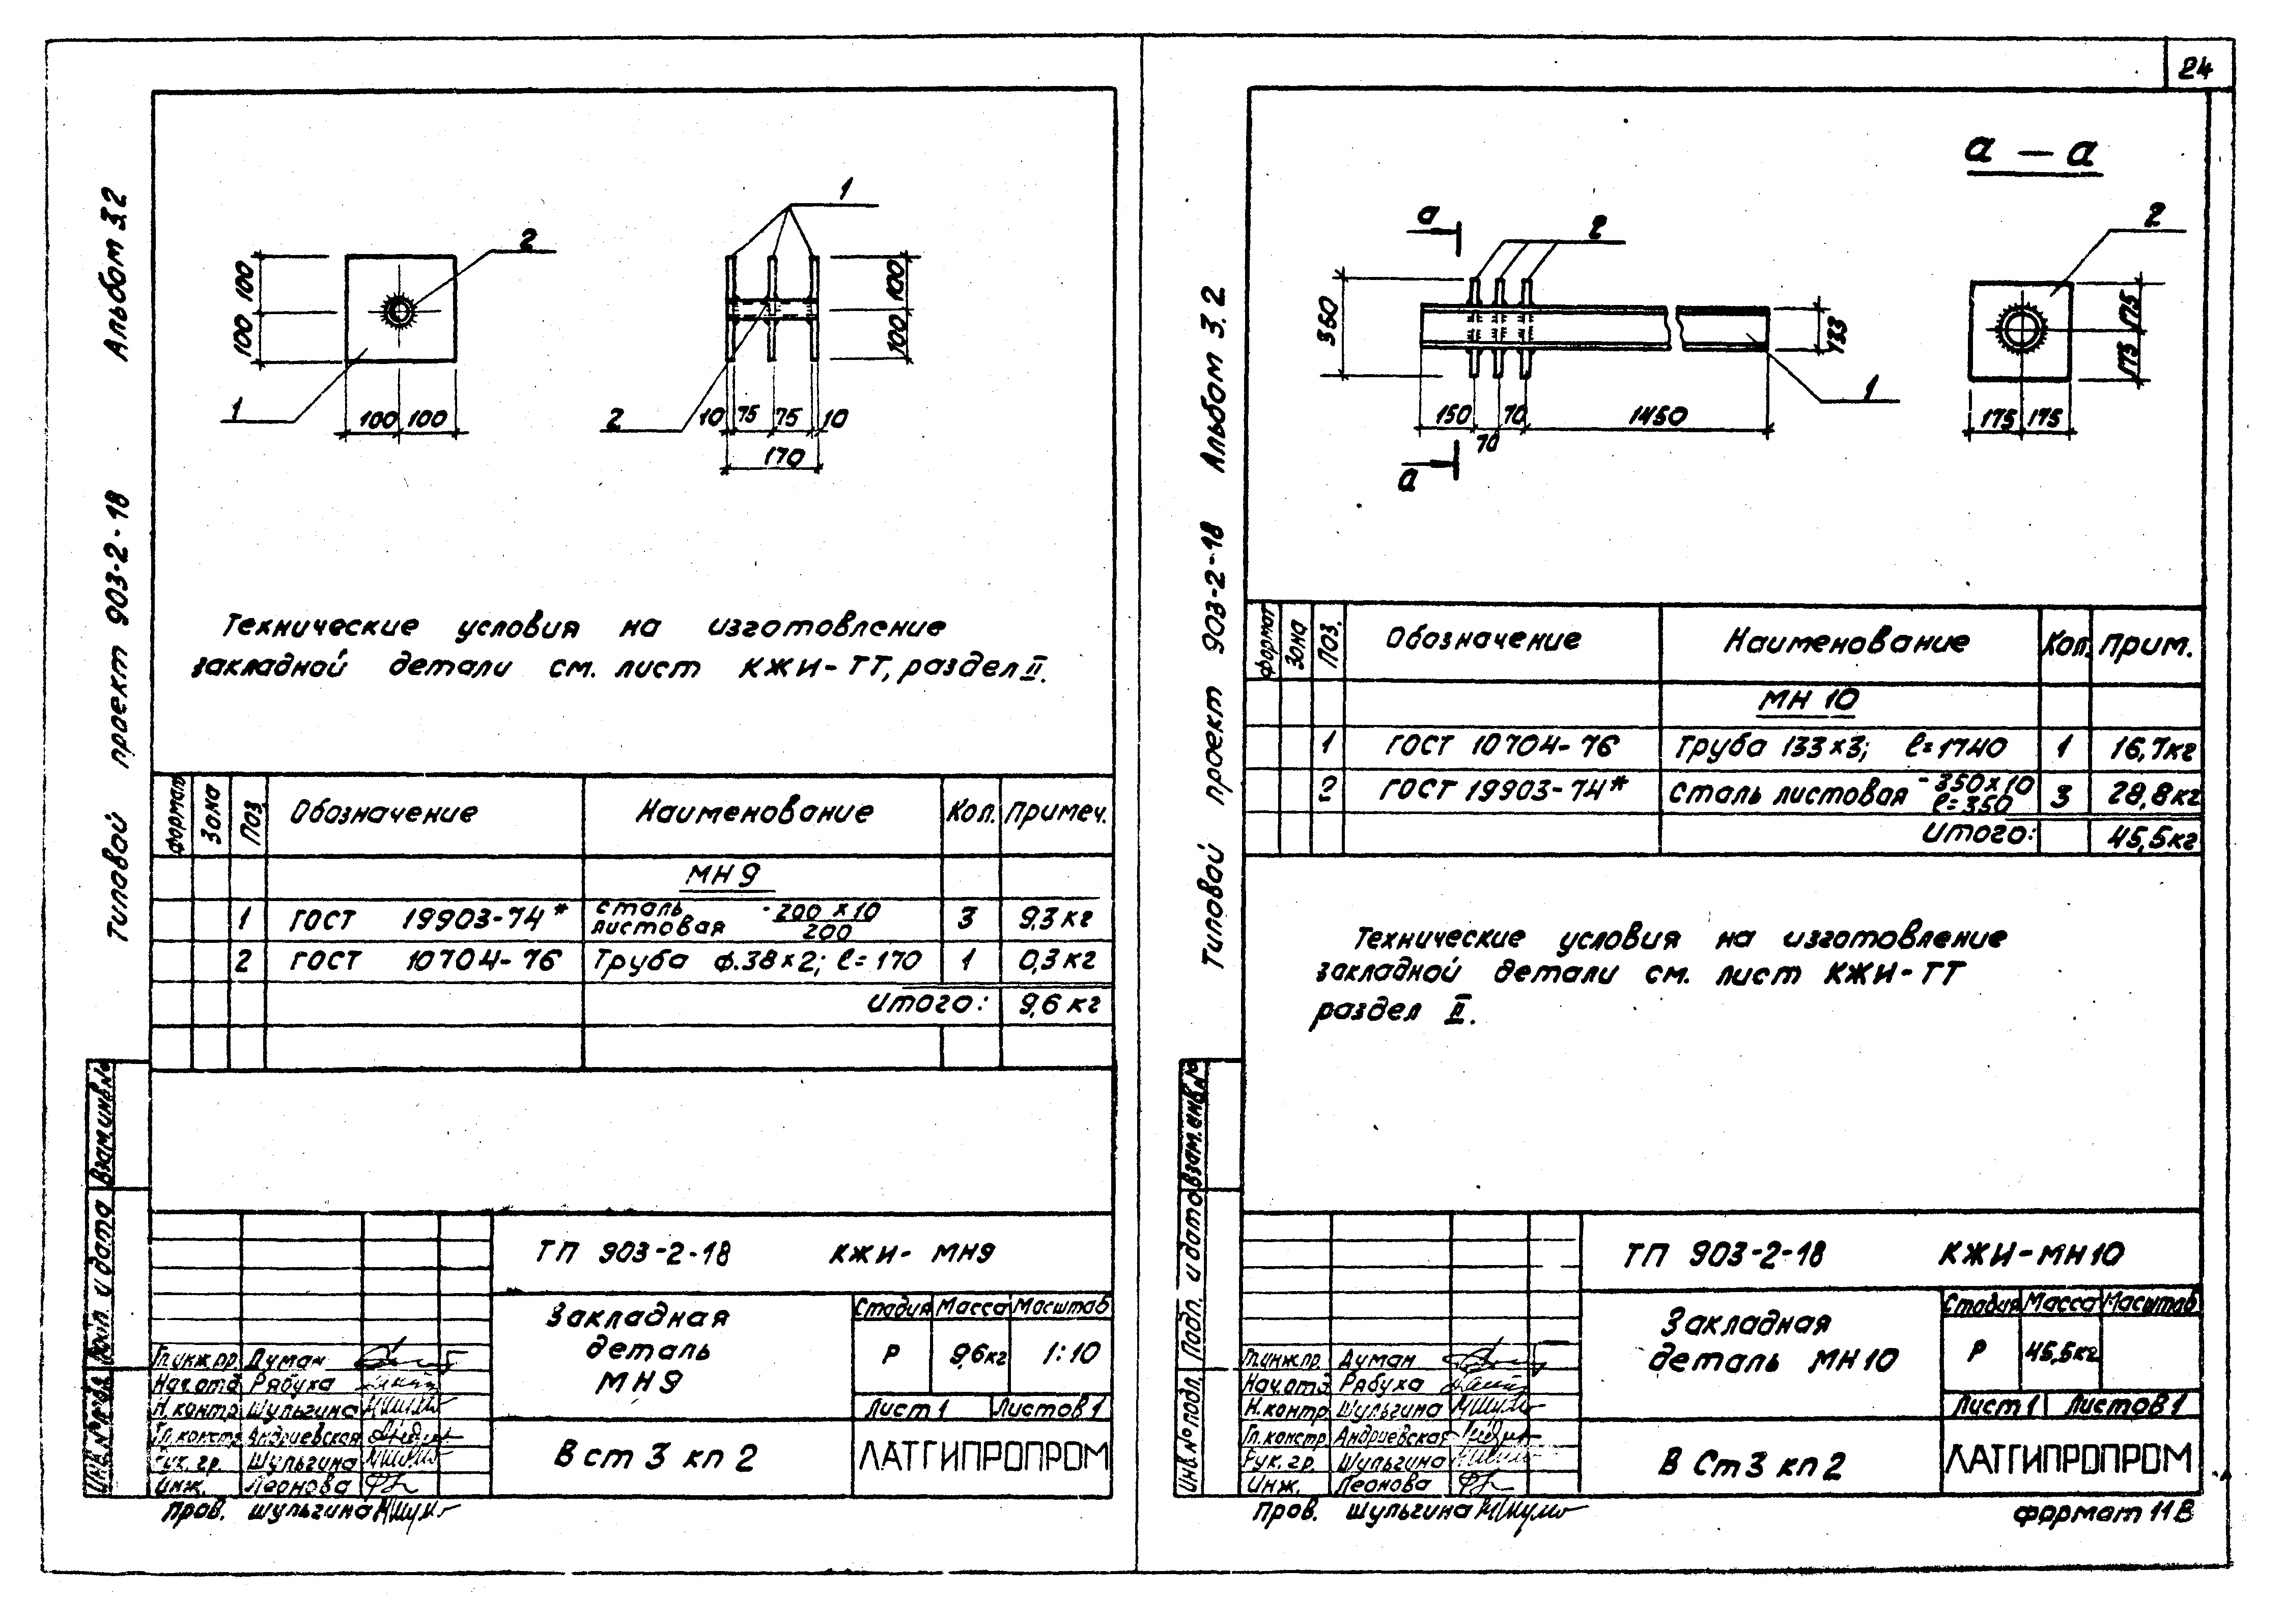 24
Альбом 3.2
Типовой проект 903-2-18
2
1
100
100
100
100
1
2
100
100
10
75
75
10
170
Технические условия на изготовление
закладной детали см. лист КЖИ-ТТ, раздел II.
Формат Зона Поз. Обозначение Наименование Кол. Примеч.
МН 9
1 ГОСТ 19903-74* сталь листовая -200 х 10
200 3 9,3 кг
2 ГОСТ 10704-76 Труба ф.38х2; ℓ=170 1 0,3 кг
Итого: 9,6 кг
Взам.инв.№
Подп. и дата
Инв.№ подл.
ТП 903-2-18 КЖИ- МН9
Закладная
деталь
МН9
Стадия Масса Масштаб
Р 9,6кг 1:10
Лист 1 Листов 1
В ст 3 кп 2
ЛАТГИПРОПРОМ
Гл.инж.пр. Думан
Нач.отд. Рябуха
Н.контр. Шульгина
Гл.констр. Андриевская
Рук.гр. Шульгина
Инж. Леонова
Пров. Шульгина
Альбом 3.2
Типовой проект 903-2-18
а — а
а
2
350
133
1
150
70
70
1450
а
2
175
175
175
175
Формат Зона Поз. Обозначение Наименование Кол. Прим.
МН 10
1 ГОСТ 10704-76 Труба 133х3; ℓ=1740 1 16,7кг
2 ГОСТ 19903-74* Сталь листовая -350х10
ℓ=350 3 28,8кг
Итого: 45,5кг
Технические условия на изготовление
закладной детали см. лист КЖИ-ТТ
раздел II.
Взам.инв.№
Подп. и дата
Инв.№ подл.
ТП 903-2-18 КЖИ-МН10
Закладная
деталь МН10
Стадия Масса Масштаб
Р 45,5кг
Лист 1 Листов 1
В Ст 3 кп 2
ЛАТГИПРОПРОМ
Гл.инж.пр. Думан
Нач.отд. Рябуха
Н.контр. Шульгина
Гл.констр. Андриевская
Рук.гр. Шульгина
Инж. Леонова
Пров. Шульгина
Формат 11В